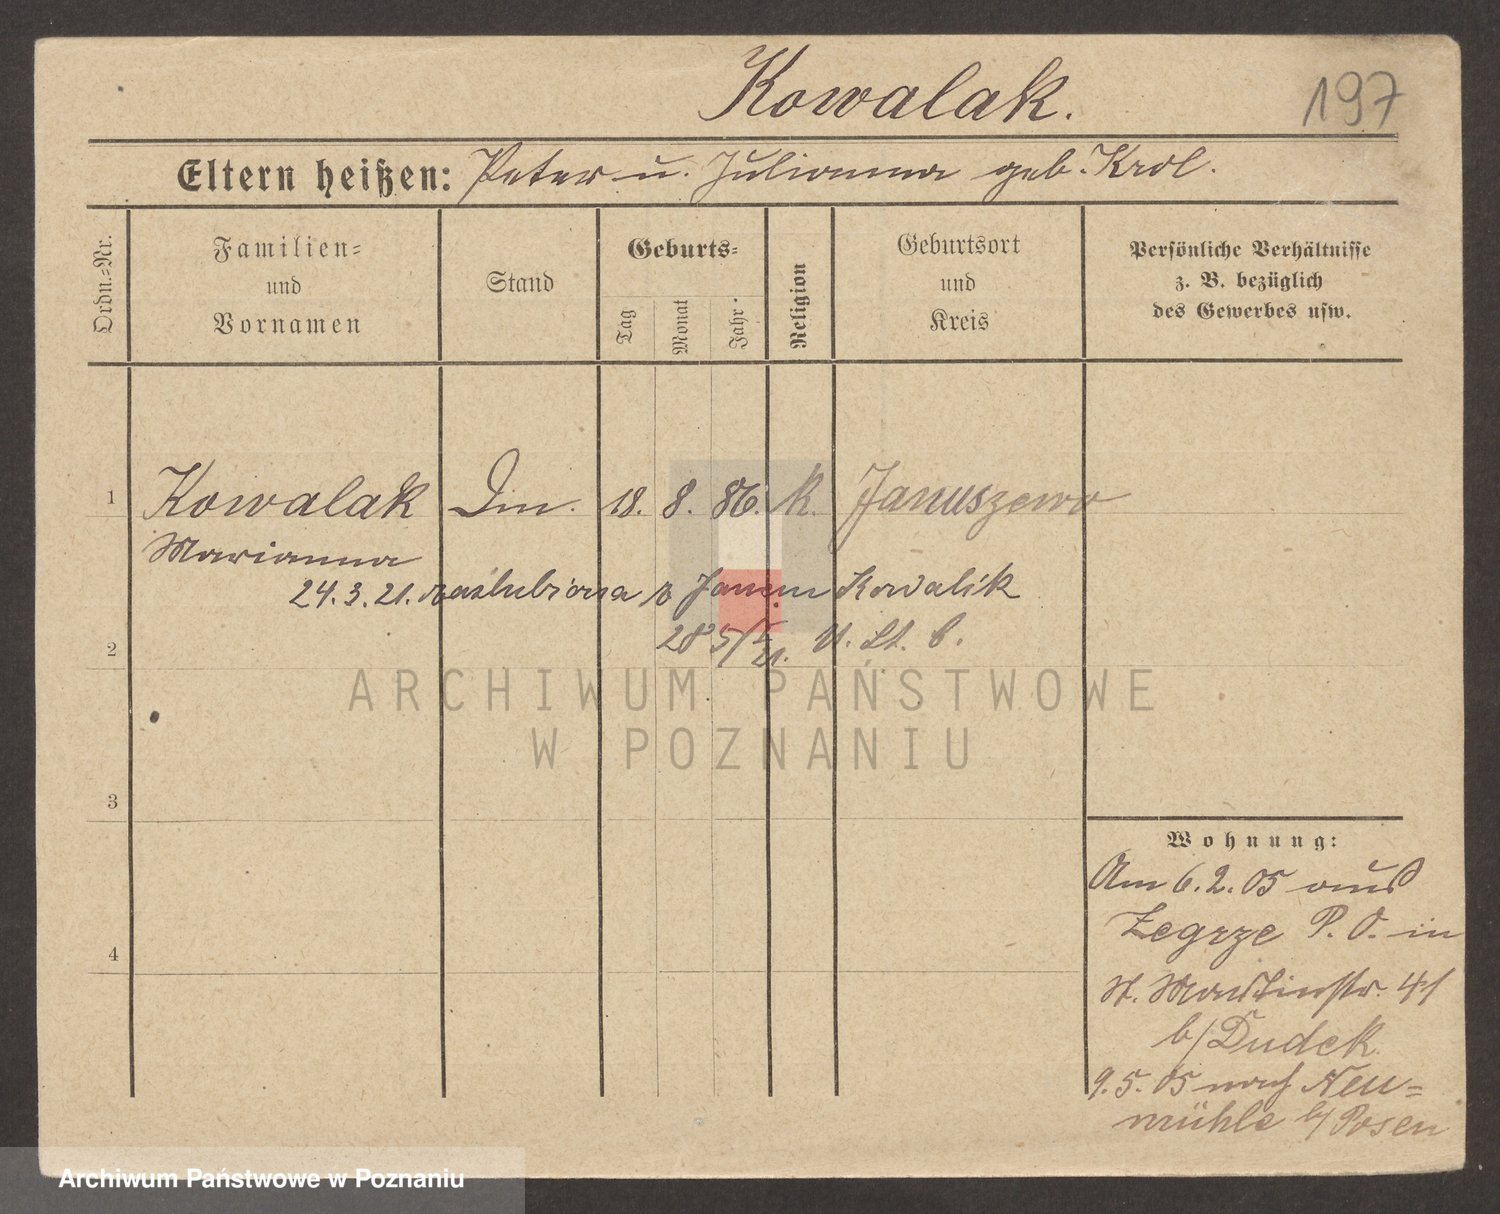 Kowalak.
197
Eltern heißen: Peter u. Julianna geb. Krol.
Ordn.-Nr.
Familien-
und
Vornamen
Stand
Geburts-
Tag
Monat
Jahr
Religion
Geburtsort
und
Kreis
Persönliche Verhältnisse
z. B. bezüglich
des Gewerbes usw.
1 Kowalak Din. 18. 8. 86. K. Januszewo
Marianna
24.3.21. zaślubiona z Janem Kowalik
285/21. U. St. b.
2
3
4
ARCHIWUM PAŃSTWOWE
W POZNANIU
Wohnung:
Am 6.2.05 aus
Zegrze P. O. in
St. Martinstr. 41
b/Dudek
9.5.05 nach Neu-
mühle b/Posen
Archiwum Państwowe w Poznaniu